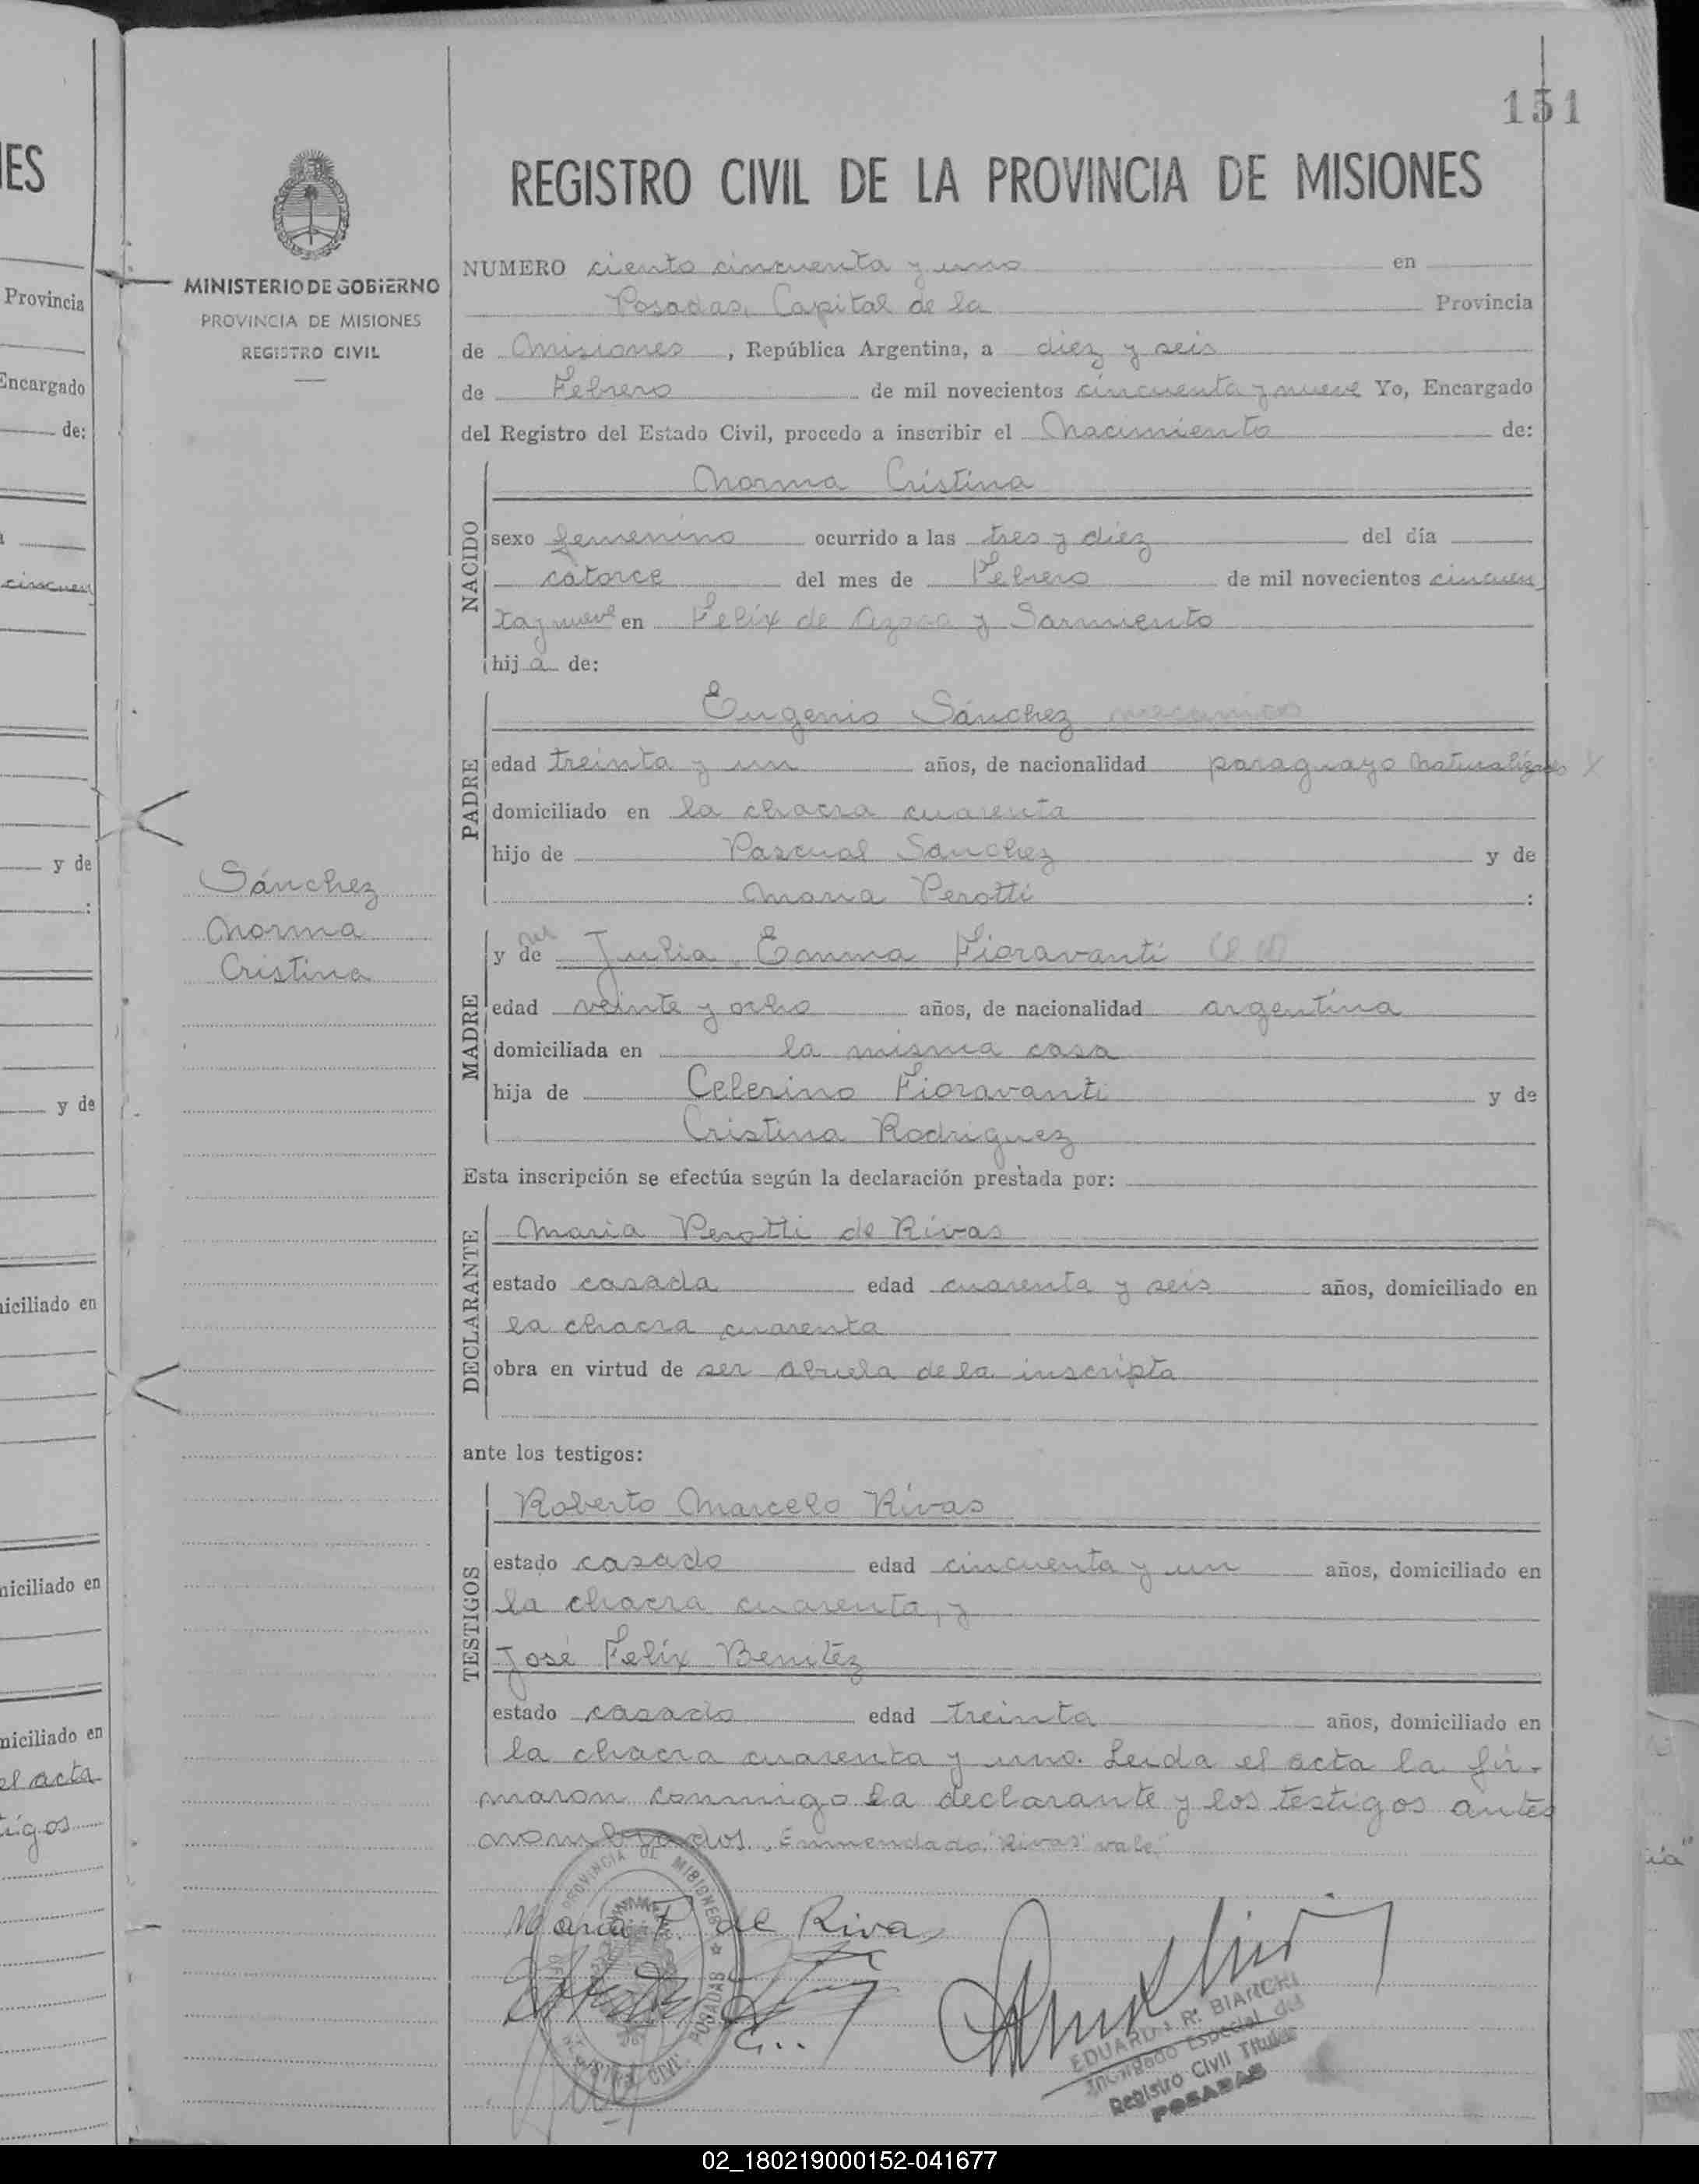 151
REGISTRO CIVIL DE LA PROVINCIA DE MISIONES
MINISTERIO DE GOBIERNO
PROVINCIA DE MISIONES
REGISTRO CIVIL
NUMERO ciento cincuenta y uno en
Posadas, Capital de la Provincia
de Misiones, República Argentina, a diez y seis
de Febrero de mil novecientos cincuenta y nueve Yo, Encargado
del Registro del Estado Civil, procedo a inscribir el Nacimiento de:
NACIDO
Norma Cristina
sexo femenino ocurrido a las tres y diez del día
catorce del mes de Febrero de mil novecientos cincuen
ta y nueve en Felix de Azara y Sarmiento
hij a de:
PADRE
Eugenio Sánchez mecanico
edad treinta y un años, de nacionalidad paraguayo Naturalizado X
domiciliado en la chacra cuarenta
hijo de Pascual Sanchez y de
Maria Perotti :
Sánchez
Norma
Cristina
MADRE
y de Julia Emma Fioravanti
edad veinte y ocho años, de nacionalidad argentina
domiciliada en la misma casa
hija de Celerino Fioravanti y de
Cristina Rodriguez
Esta inscripción se efectúa según la declaración prestada por:
DECLARANTE
Maria Perotti de Rivas
estado casada edad cuarenta y seis años, domiciliado en
la chacra cuarenta
obra en virtud de ser abuela de la inscripta
ante los testigos:
TESTIGOS
Roberto Marcelo Rivas
estado casado edad cincuenta y un años, domiciliado en
la chacra cuarenta, y
José Felix Benitez
estado casado edad treinta años, domiciliado en
la chacra cuarenta y uno. Leida el acta la fir-
maron conmigo la declarante y los testigos antes
nombrados. Enmendado "Rivas" vale.
Maria P. de Rivas
PROVINCIA DE MISIONES
POSADAS
EDUARDO R. BIANCHI
Encargado Especial del
Registro Civil Titular
POSADAS
ES
Provincia
Encargado
de:
cincuen
y de
:
y de
iciliado en
niciliado en
niciliado en
el acta
tigos
02_180219000152-041677